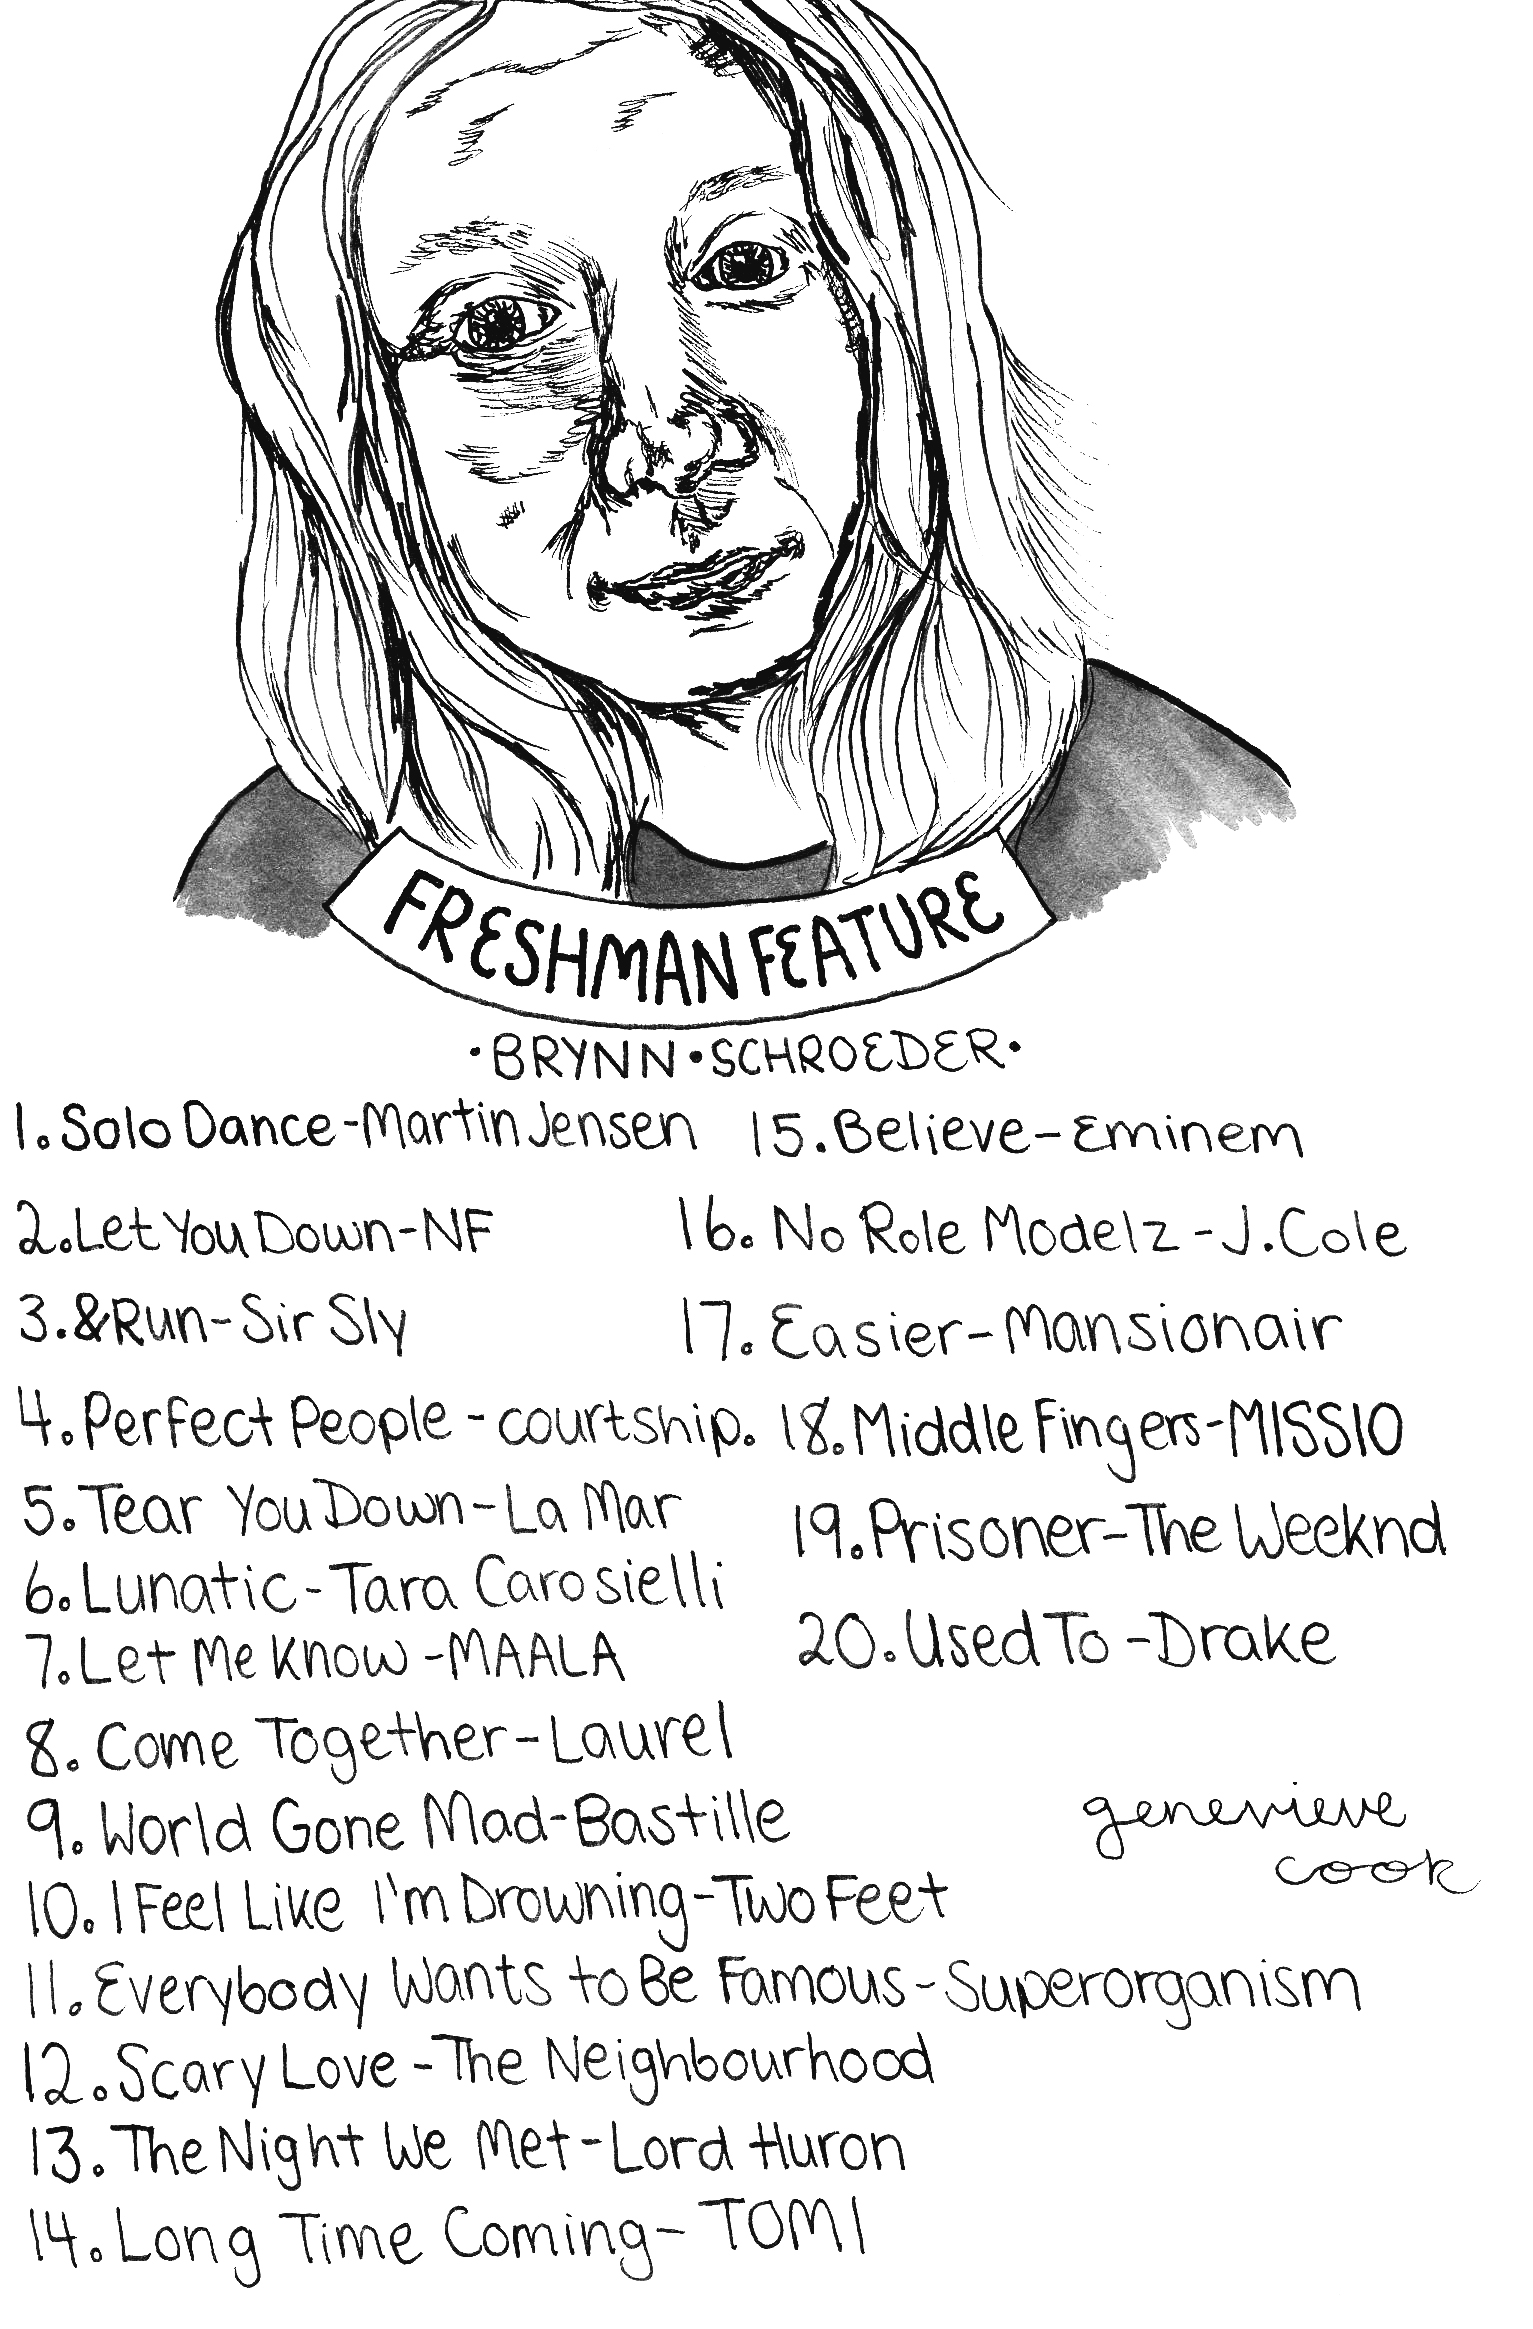 FRESHMAN FEATURE
·BRYNN·SCHROEDER·
1. Solo Dance-Martin Jensen
2. Let You Down-NF
3. &Run-Sir Sly
4. Perfect People-courtship.
5. Tear You Down-La Mar
6. Lunatic-Tara Carosielli
7. Let Me Know-MAALA
8. Come Together-Laurel
9. World Gone Mad-Bastille
10. I Feel Like I'm Drowning-Two Feet
11. Everybody Wants to Be Famous-Superorganism
12. Scary Love-The Neighbourhood
13. The Night We Met-Lord Huron
14. Long Time Coming-TOMI
15. Believe-Eminem
16. No Role Modelz-J.Cole
17. Easier-Mansionair
18. Middle Fingers-MISSIO
19. Prisoner-The Weeknd
20. Used To-Drake
genevieve
cook